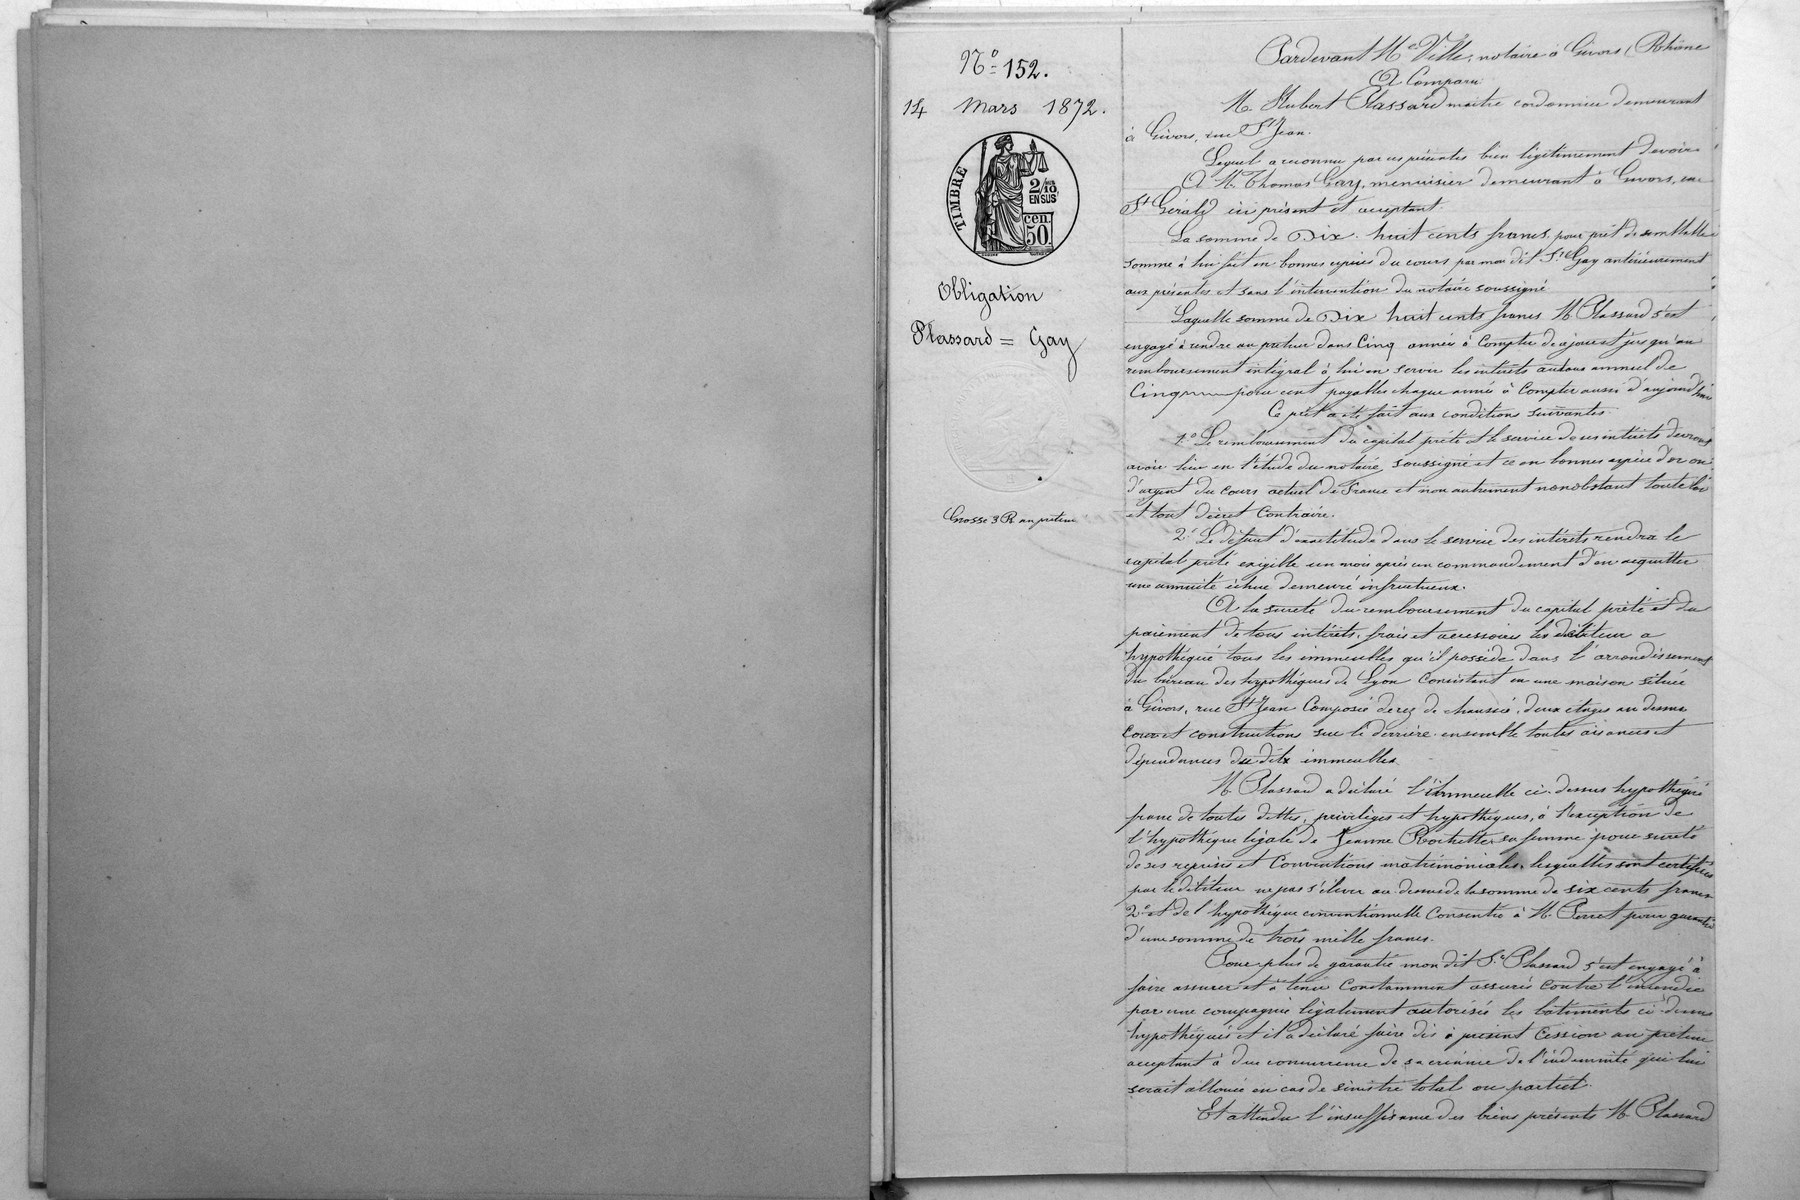 Nº 152.
14 Mars 1872.
TIMBRE
2/10 EN SUS
cen. 50
Obligation
Plassard = Gay
Grosse 3 R au prêteur
Pardevant Me Ville, notaire à Givors (Rhône
A Comparu
M. Hubert Plassard maître cordonnier demeurant
à Givors, rue St Jean.
Lequel a reconnu par ces présentes bien légitimement devoir
A M. Thomas Gay, menuisier demeurant à Givors, rue
St Gérald ici présent et acceptant.
La somme de Dix-huit cents francs, pour prêt de semblable
somme à lui fait en bonnes espèces du cours par mon dit Sr Gay antérieurement
aux présentes et sans l'intervention du notaire soussigné
Laquelle somme de Dix huit cents francs M. Plassard s'est
engagé à rendre au prêteur dans Cinq années à Compter de ce jour et jusqu'au
remboursement intégral à lui en servir les intérêts au taux annuel de
Cinq pour cent payables chaque année à Compter aussi d'aujourd'hui
Ce prêt a été fait aux conditions suivantes.
1º Le remboursement du capital prêté et le service de ses intérêts devront
avoir lieu en l'étude du notaire soussigné et ce en bonnes espèces d'or ou
d'argent du cours actuel de France et non autrement nonobstant toute loi
et tout décret Contraire.
2º Le défaut d'exactitude dans le service des intérêts rendra le
capital prêté exigible un mois après un commandement d'en acquitter
une annuité échue demeuré infructueux.
A la sureté du remboursement du capital prêté et du
paiement de tous intérêts, frais et accessoires le débiteur a
hypothéqué tous les immeubles qu'il possède dans l'arrondissement
du bureau des hypothèques de Lyon Consistant en une maison située
à Givors, rue St Jean Composée de rez de chaussée, deux étages au dessus
Cour et constructions sur le derrière ensemble toutes aisances et
dépendances du dits immeubles.
M. Plassard a déclaré l'immeuble ci-dessus hypothéqué
franc de toutes dettes, privilèges et hypothèques, à l'exception de
l'hypothèque légale de Jeanne Rochette sa femme pour sureté
de ses reprises et Conventions matrimoniales, lesquelles sont certifiées
par le débiteur ne pas s'élever au dessus de la somme de six cents francs
2º et de l'hypothèque conventionnelle Consentie à M. Perret pour garantie
d'une somme de trois mille francs.
Pour plus de garantie mon dit Sr Plassard s'est engagé à
faire assurer et à tenir Constamment assurés contre l'incendie
par une compagnie légalement autorisée les bâtiments ci-dessus
hypothéqués et il a déclaré faire dès à présent Cession au prêteur
acceptant à due concurrence de sa créance de l'indemnité qui lui
serait allouée en cas de sinistre total ou partiel.
Et attendu l'insuffisance des biens présents M. Plassard